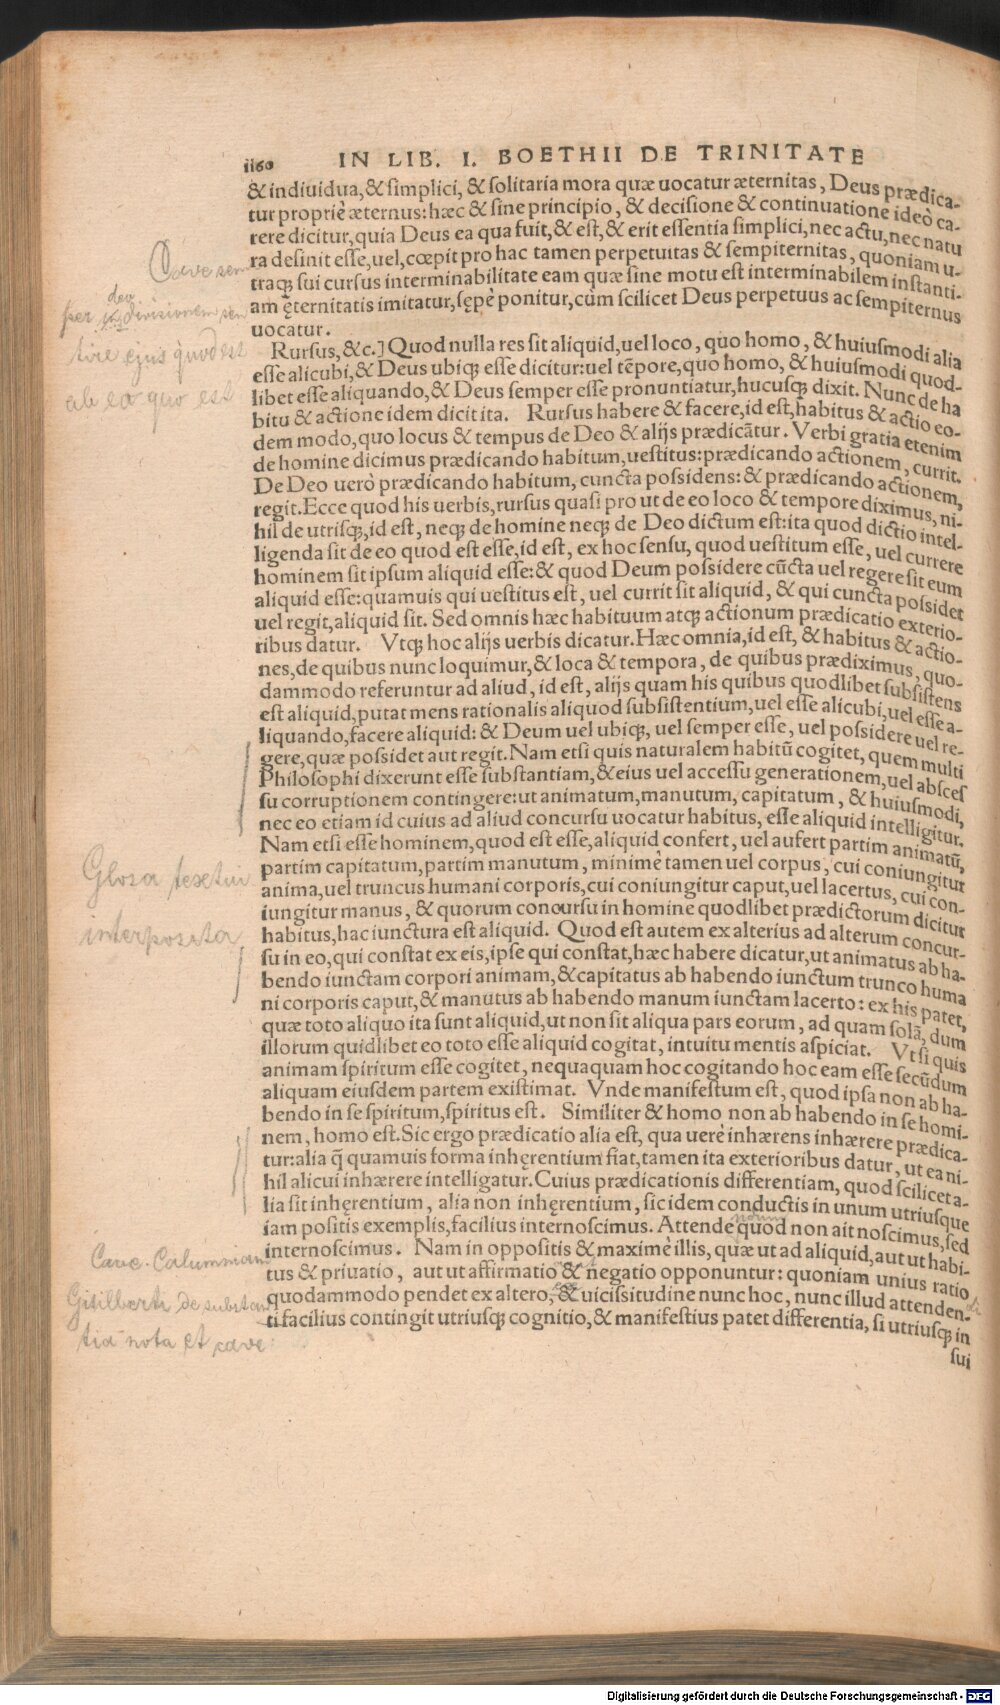 1160 IN LIB. I. BOETHII DE TRINITATE
& indiuidua, & simplici, & solitaria mora quæ uocatur æternitas, Deus prædica-
tur propriè æternus: hæc & sine principio, & decisione & continuatione ideò ca-
rere dicitur, quia Deus ea qua fuit, & est, & erit essentia simplici, nec actu, nec natu
ra desinit esse, uel, cœpit pro hac tamen perpetuitas & sempiternitas, quoniam u-
traq; sui cursus interminabilitate eam quæ sine motu est interminabilem instanti-
am ęternitatis imitatur, sępè ponitur, cùm scilicet Deus perpetuus ac sempiternus
uocatur.
Rursus, &c.] Quod nulla res sit aliquid, uel loco, quo homo, & huiusmodi alia
esse alicubi, & Deus ubiq; esse dicitur: uel tēpore, quo homo, & huiusmodi quod-
libet esse aliquando, & Deus semper esse pronuntiatur, hucusq; dixit. Nunc de ha
bitu & actione idem dicit ita. Rursus habere & facere, id est, habitus & actio eo-
dem modo, quo locus & tempus de Deo & alijs prædicātur. Verbi gratia etenim
de homine dicimus prædicando habitum, uestitus: prædicando actionem, currit.
De Deo uerò prædicando habitum, cuncta possidens: & prædicando actionem,
regit. Ecce quod his uerbis, rursus quasi pro ut de eo loco & tempore diximus, ni-
hil de utrisq;, id est, neq; de homine neq; de Deo dictum est: ita quod dictio intel-
ligenda sit de eo quod est esse, id est, ex hoc sensu, quod uestitum esse, uel currere
hominem sit ipsum aliquid esse: & quod Deum possidere cūcta uel regere sit eum
aliquid esse: quamuis qui uestitus est, uel currit sit aliquid, & qui cuncta possidet
uel regit, aliquid sit. Sed omnis hæc habituum atq; actionum prædicatio exterio-
ribus datur. Vtq; hoc alijs uerbis dicatur. Hæc omnia, id est, & habitus & actio-
nes, de quibus nunc loquimur, & loca & tempora, de quibus prædiximus, quo-
dammodo referuntur ad aliud, id est, alijs quam his quibus quodlibet subsistens
est aliquid, putat mens rationalis aliquod subsistentium, uel esse alicubi, uel esse a-
liquando, facere aliquid: & Deum uel ubiq;, uel semper esse, uel possidere uel re-
gere, quæ possidet aut regit. Nam etsi quis naturalem habitū cogitet, quem multi
Philosophi dixerunt esse substantiam, & eius uel accessu generationem, uel absces
su corruptionem contingere: ut animatum, manutum, capitatum, & huiusmodi,
nec eo etiam id cuius ad aliud concursu uocatur habitus, esse aliquid intelligitur.
Nam etsi esse hominem, quod est esse, aliquid confert, uel aufert partim animatū,
partim capitatum, partim manutum, minimè tamen uel corpus, cui coniungitur
anima, uel truncus humani corporis, cui coniungitur caput, uel lacertus, cui con-
iungitur manus, & quorum concursu in homine quodlibet prædictorum dicitur
habitus, hac iunctura est aliquid. Quod est autem ex alterius ad alterum concur-
su in eo, qui constat ex eis, ipse qui constat, hæc habere dicatur, ut animatus ab ha-
bendo iunctam corpori animam, & capitatus ab habendo iunctum trunco huma
ni corporis caput, & manutus ab habendo manum iunctam lacerto: ex his patet,
quæ toto aliquo ita sunt aliquid, ut non sit aliqua pars eorum, ad quam solā, dum
illorum quidlibet eo toto esse aliquid cogitat, intuitu mentis aspiciat. Vt si quis
animam spiritum esse cogitet, nequaquam hoc cogitando hoc eam esse secūdum
aliquam eiusdem partem existimat. Vnde manifestum est, quod ipsa non ab ha-
bendo in se spiritum, spiritus est. Similiter & homo non ab habendo in se homi-
nem, homo est. Sic ergo prædicatio alia est, qua uerè inhærens inhærere prædica-
tur: alia q̄ quamuis forma inhęrentium fiat, tamen ita exterioribus datur, ut ea ni-
hil alicui inhærere intelligatur. Cuius prædicationis differentiam, quod scilicet a-
lia sit inhęrentium, alia non inhęrentium, sic idem conductis in unum utriusque
iam positis exemplis, facilius internoscimus. Attende quod non ait noscimus, sed
internoscimus. Nam in oppositis & maximè illis, quæ ut ad aliquid, aut ut habi-
tus & priuatio, aut ut affirmatio & negatio opponuntur: quoniam unius ratio
quodammodo pendet ex altero, & uicissitudine nunc hoc, nunc illud attenden-
ti facilius contingit utriusq; cognitio, & manifestius patet differentia, si utriusq; in
sui
Cave sen
per divisionem sen
deo
tire ejus quod est
ab eo quo est
Glosa textui
interposita
Cave. Calumniam
Gisilberti de substan
tia nota et cave
Digitalisierung gefördert durch die Deutsche Forschungsgemeinschaft - DFG